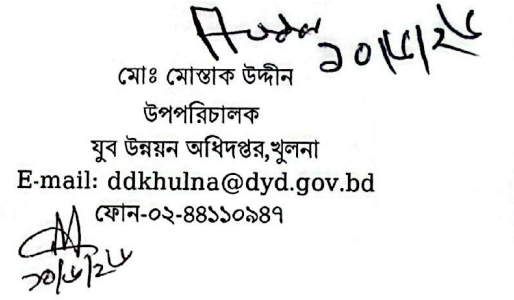 মোঃ মোস্তাক উদ্দীন
উপপরিচালক
যুব উন্নয়ন অধিদপ্তর,খুলনা
E-mail: ddkhulna@dyd.gov.bd
ফোন-০২-৪৪১১০৯৪৭